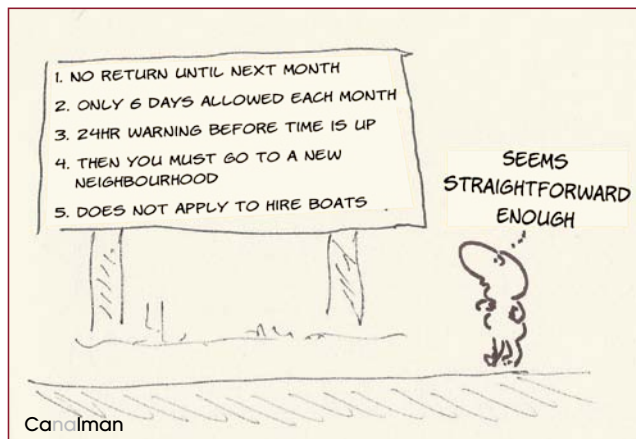 1. NO RETURN UNTIL NEXT MONTH
2. ONLY 6 DAYS ALLOWED EACH MONTH
3. 24HR WARNING BEFORE TIME IS UP
4. THEN YOU MUST GO TO A NEW
NEIGHBOURHOOD
5. DOES NOT APPLY TO HIRE BOATS
SEEMS
STRAIGHTFORWARD
ENOUGH
Canalman